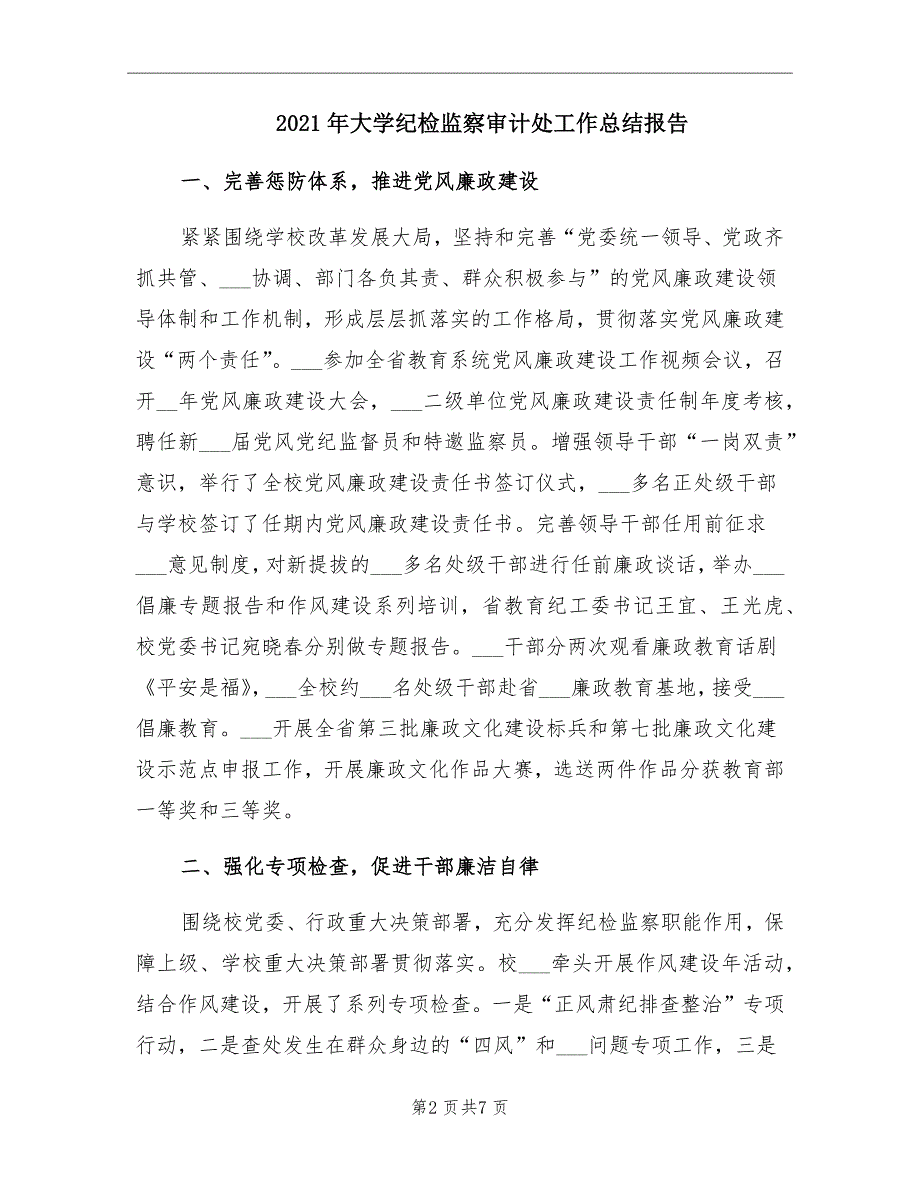 2021 年大学纪检监察审计处工作总结报告
一、完善惩防体系，推进党风廉政建设
紧紧围绕学校改革发展大局，坚持和完善“党委统一领导、党政齐
抓共管、___协调、部门各负其责、群众积极参与”的党风廉政建设领
导体制和工作机制，形成层层抓落实的工作格局，贯彻落实党风廉政建
设“两个责任”。___参加全省教育系统党风廉政建设工作视频会议，召
开__年党风廉政建设大会，___二级单位党风廉政建设责任制年度考核，
聘任新___届党风党纪监督员和特邀监察员。增强领导干部“一岗双责”
意识，举行了全校党风廉政建设责任书签订仪式，___多名正处级干部
与学校签订了任期内党风廉政建设责任书。完善领导干部任用前征求
___意见制度，对新提拔的___多名处级干部进行任前廉政谈话，举办___
倡廉专题报告和作风建设系列培训，省教育纪工委书记王宜、王光虎、
校党委书记宛晓春分别做专题报告。___干部分两次观看廉政教育话剧
《平安是福》，___全校约___名处级干部赴省___廉政教育基地，接受___
倡廉教育。___开展全省第三批廉政文化建设标兵和第七批廉政文化建
设示范点申报工作，开展廉政文化作品大赛，选送两件作品分获教育部
一等奖和三等奖。
二、强化专项检查，促进干部廉洁自律
围绕校党委、行政重大决策部署，充分发挥纪检监察职能作用，保
障上级、学校重大决策部署贯彻落实。校___牵头开展作风建设年活动，
结合作风建设，开展了系列专项检查。一是“正风肃纪排查整治”专项
行动，二是查处发生在群众身边的“四风”和___问题专项工作，三是
第2 页共7 页